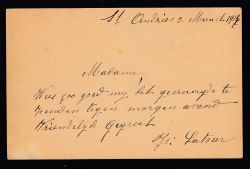 St Andries 2. Maart 1917
Madame,
Wees zoo goed mij het gevraagde te
zenden tegen morgen avond
Vriendelijk Gegroet
Latour